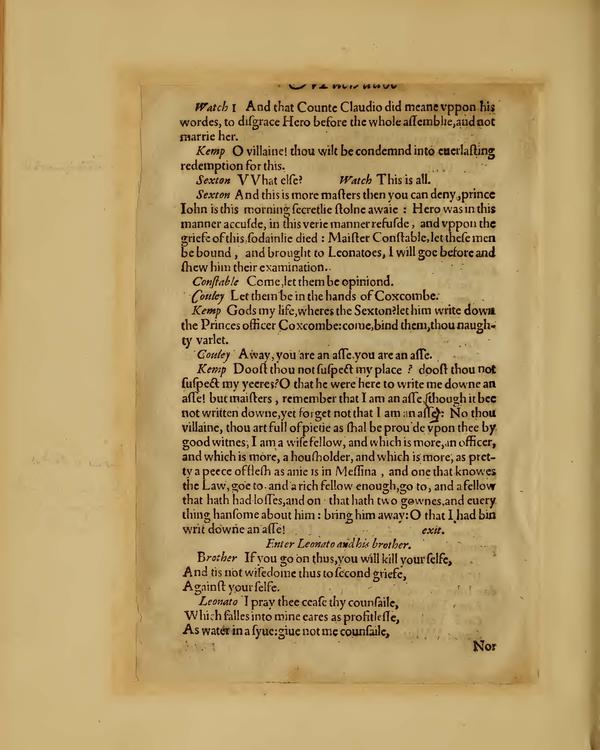 Watch 1 And that Counte Claudio did meane vppon his
wordes, to disgrace Hero before the whole assemblie,and not
marrie her.
Kemp O villaine! thou wilt be condemnd into euerlasting
redemption for this.
Sexton VVhat else? Watch This is all.
Sexton And this is more masters then you can deny,prince
Iohn is this morning secretlie stolne awaie : Hero was in this
manner accusde, in this verie manner refusde , and vppon the
griefe of this sodainlie died : Maister Constable,let these men
be bound , and brought to Leonatoes, I will goe before and
shew him their examination.
Constable Come,let them be opiniond.
Couley Let them be in the hands of Coxcombe.
Kemp Gods my life,wheres the Sexton?let him write down
the Princes officer Coxcombe:come,bind them,thou naugh-
ty varlet.
Couley Away,you are an asse,you are an asse.
Kemp Doost thou not suspect my place ? doost thou not
suspect my yeeres?O that he were here to write me downe an
asse! but maisters , remember that I am an asse,though it bee
not written downe,yet forget not that I am an asse: No thou
villaine, thou art full of pietie as shal be prou'de vpon thee by
good witnes, I am a wise fellow, and which is more,an officer,
and which is more, a housholder, and which is more, as pret-
ty a peece of flesh as anie is in Messina , and one that knowes
the Law, goe to. and a rich fellow enough,go to, and a fellow
that hath had losses,and on that hath two gownes,and euery
thing hansome about him : bring him away:O that I had bin
writ downe an asse! exit.
Enter Leonato and his brother.
Brother If you go on thus,you will kill your selfe,
And tis not wisedome thus to second griefe,
Against your selfe.
Leonato I pray thee cease thy counsaile,
Which falles into mine eares as profitlesse,
As water in a syue:giue not me counsaile,
Nor